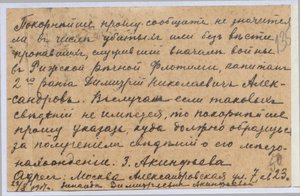 Покорнѣйше прошу сообщить не значится
ли въ числѣ убитыхъ или безъ вѣсти
пропавшихъ служившій вначалѣ войны
въ Рижской рѣчной флотиліи, капитанъ
2го ранга Димитрій Николаевичъ Алек-
сандровъ. Въ случаѣ если таковыхъ
свѣдѣній не имѣется, то покорнѣйше
прошу указать, куда должно обратиться
за полученіемъ свѣдѣній о его место-
нахожденіи. З.
Адресъ: Москва Александровская ул. 7 23.